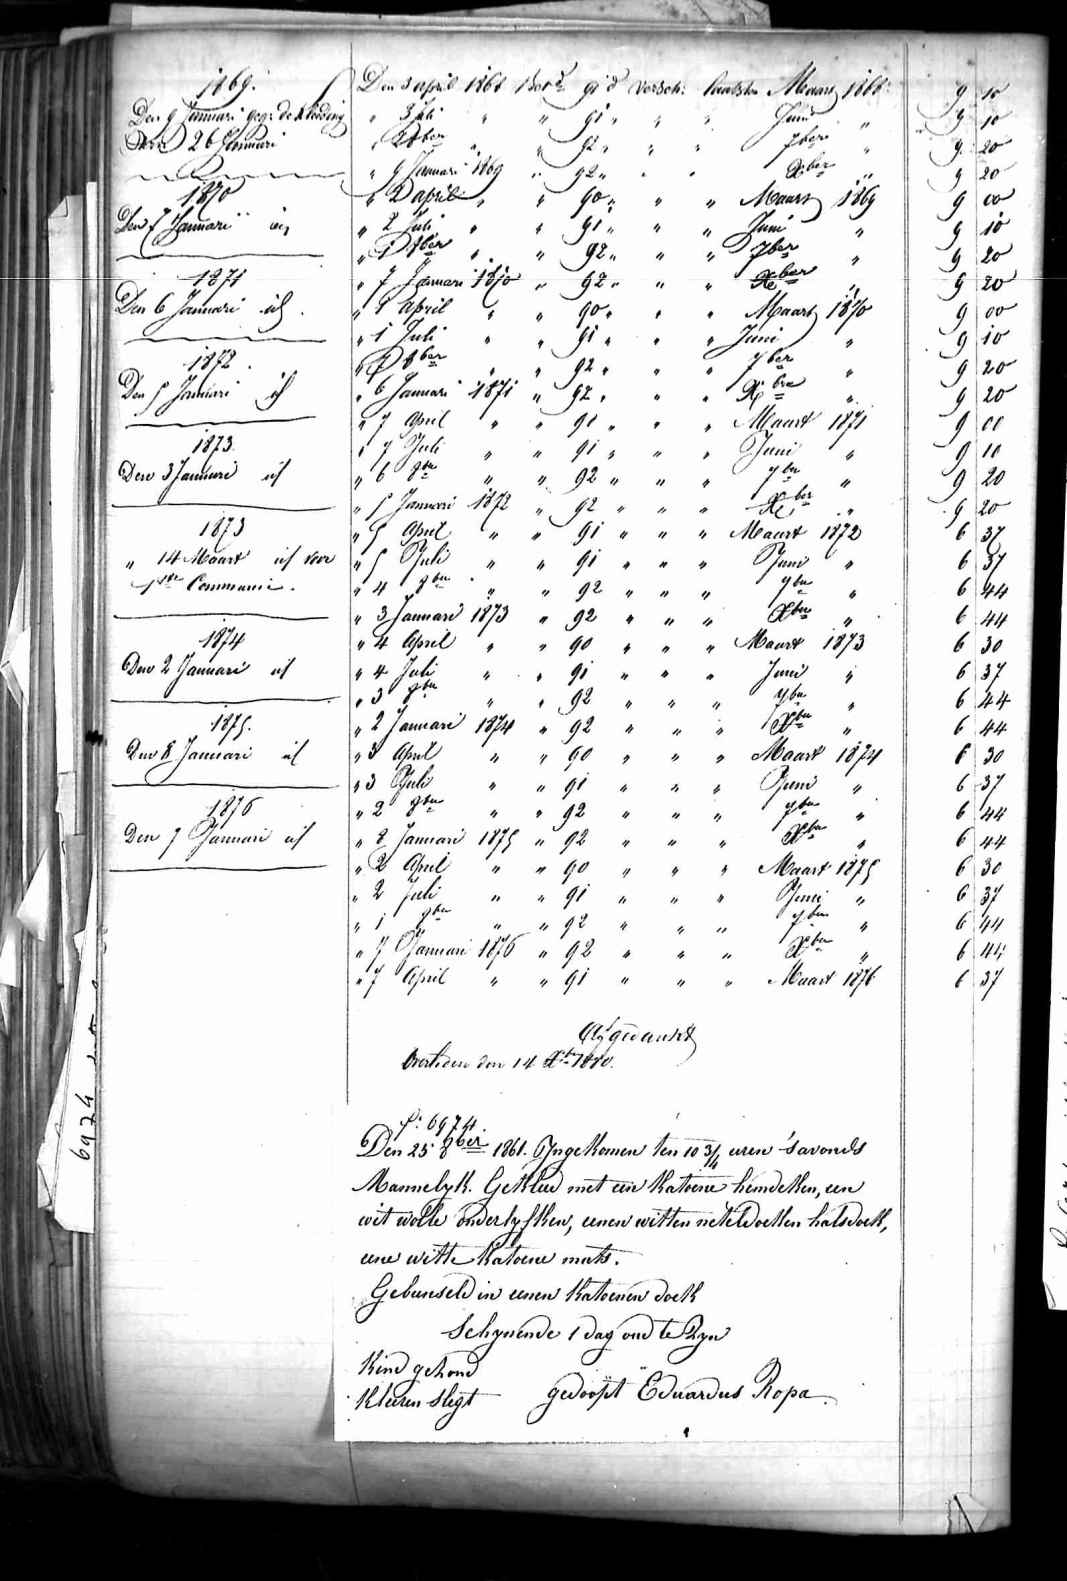 1869.
Den 9 Januari geg: de kleeding
Den 26 Januari
1870
Den 7 Januari id
1871
Den 6 Januari id.
1872.
Den 5 Januari id
1873.
Den 3 Januari id
1873
" 14 Maart id voor
1ste Communie.
1874
Den 2 Januari id
1875.
Den 8 Januari id
1876
Den 7 Januari id
Den 3 april 1868 91 d versch: laatsten Maart 1868. 9 10
" 3 Juli " " 91 " " " Juni " 9 10
" 8ber " " 92 " " " 7ber " 9 20
" 9 Januari 1869 " 92 " " " Xber " 9 20
" 2 april " " 90 " " " Maart 1869 9 00
" 2 Juli " " 91 " " " Juni " 9 10
" 1 8ber " " 92 " " " 7ber " 9 20
" 7 Januari 1870 " 92 " " " Xber " 9 20
" 1 April " " 90 " " " Maart 1870 9 00
" 1 Juli " " 91 " " " Juni " 9 10
" 8ber " " 92 " " " 7ber " 9 20
" 6 Januari 1871 " 92 " " " Xbre " 9 20
" 7 April " " 91 " " " Maart 1871 9 00
" 7 Juli " " 91 " " " Juni " 9 10
" 6 8ber " " 92 " " " 7ber " 9 20
" 5 Januari 1872 " 92 " " " Xber " 9 20
" 5 April " " 91 " " " Maart 1872 6 37
" 5 Juli " " 91 " " " Juni " 6 37
" 4 8ber " " 92 " " " 7ber " 6 44
" 3 Januari 1873 " 92 " " " Xber " 6 44
" 4 April " " 90 " " " Maart 1873 6 30
" 4 Juli " " 91 " " " Juni " 6 37
" 3 8ber " " 92 " " " 7ber " 6 44
" 2 Januari 1874 " 92 " " " Xber " 6 44
" 3 April " " 90 " " " Maart 1874 6 30
" 3 Juli " " 91 " " " Juni " 6 37
" 2 8ber " " 92 " " " 7ber " 6 44
" 8 Januari 1875 " 92 " " " Xber " 6 44
" 2 April " " 90 " " " Maart 1875 6 30
" 2 Juli " " 91 " " " Juni " 6 37
" 1 8ber " " 92 " " " 7ber " 6 44
" 7 Januari 1876 " 92 " " " Xber " 6 44
" 7 April " " 91 " " " Maart 1876 6 37
Afgedankt
Overleden den 14 Xber
6974
No: 6974
Den 25 8ber 1861. Ingekomen ten 10 3/4 uren 's avonds
Mannelyk. Gekleed met een katoene hemdeken, een
wit wolle onderlyfken, eenen witten neteldoeken halsdoek,
eene witte katoene muts.
Gebunseld in eenen katoenen doek
Schynende 1 dag oud te zyn
Kind gezond
Kleeren slegt gedoopt Eduardus Ropa.